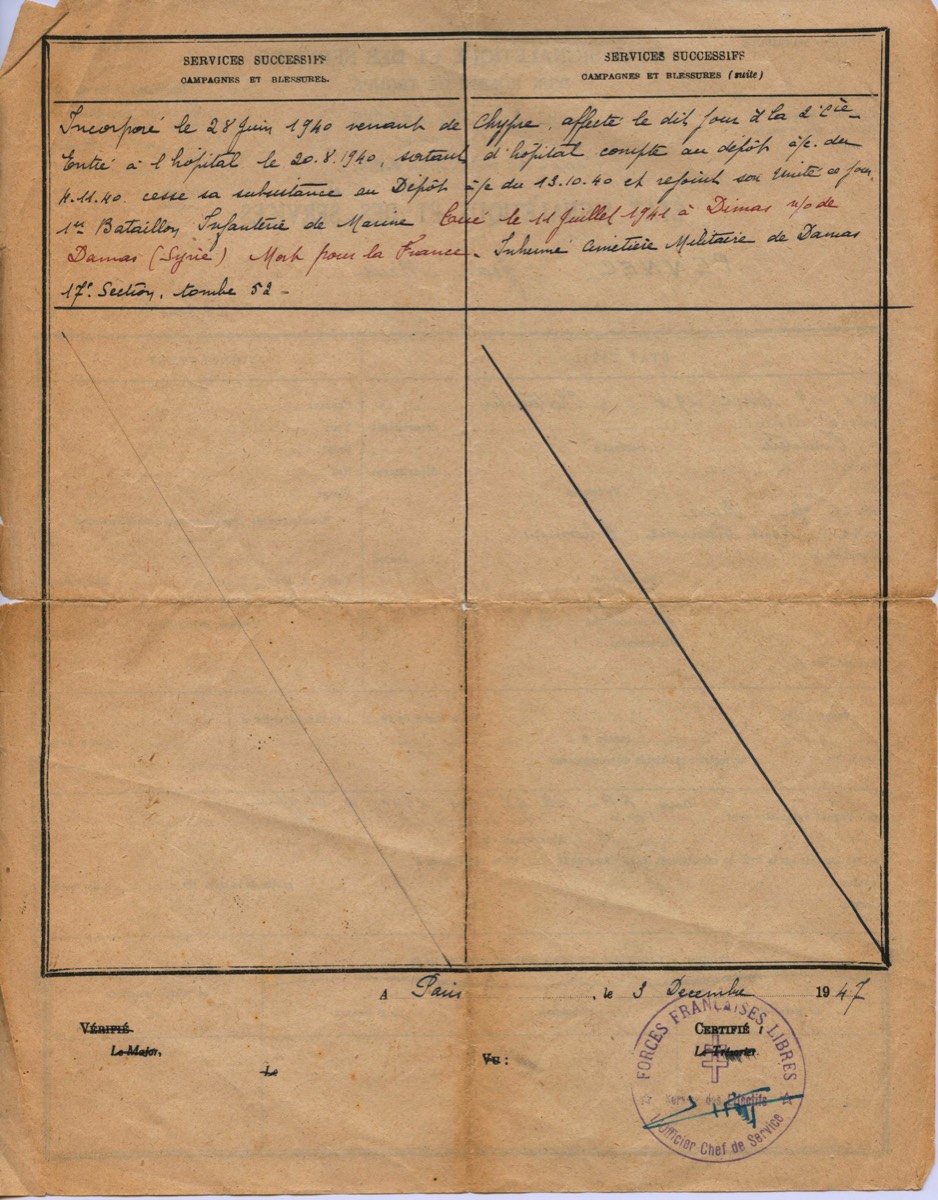 SERVICES SUCCESSIFS
CAMPAGNES ET BLESSURES.
SERVICES SUCCESSIFS
CAMPAGNES ET BLESSURES (suite)
Incorporé le 28 Juin 1940 venant de Chypre, affecté le dit jour à la 2e Cie
Entré à l'hôpital le 20.8.1940, sortant d'hôpital compte au dépôt a/c du
4.11.40. cesse sa subsistance au Dépôt a/c du 13.10.40 et rejoint son Unité ce jour,
1er Bataillon Infanterie de Marine Tué le 11 Juillet 1941 à Dimas n/o de
Damas (Syrie) Mort pour la France. Inhumé Cimetière Militaire de Damas
17e Section, tombe 52 -
A Paris, le 3 Decembre 1947
VÉRIFIÉ
Le Major,
Le
VU :
CERTIFIÉ :
Le Trésorier
FORCES FRANÇAISES LIBRES
Service des Effectifs
L'Officier Chef de Service